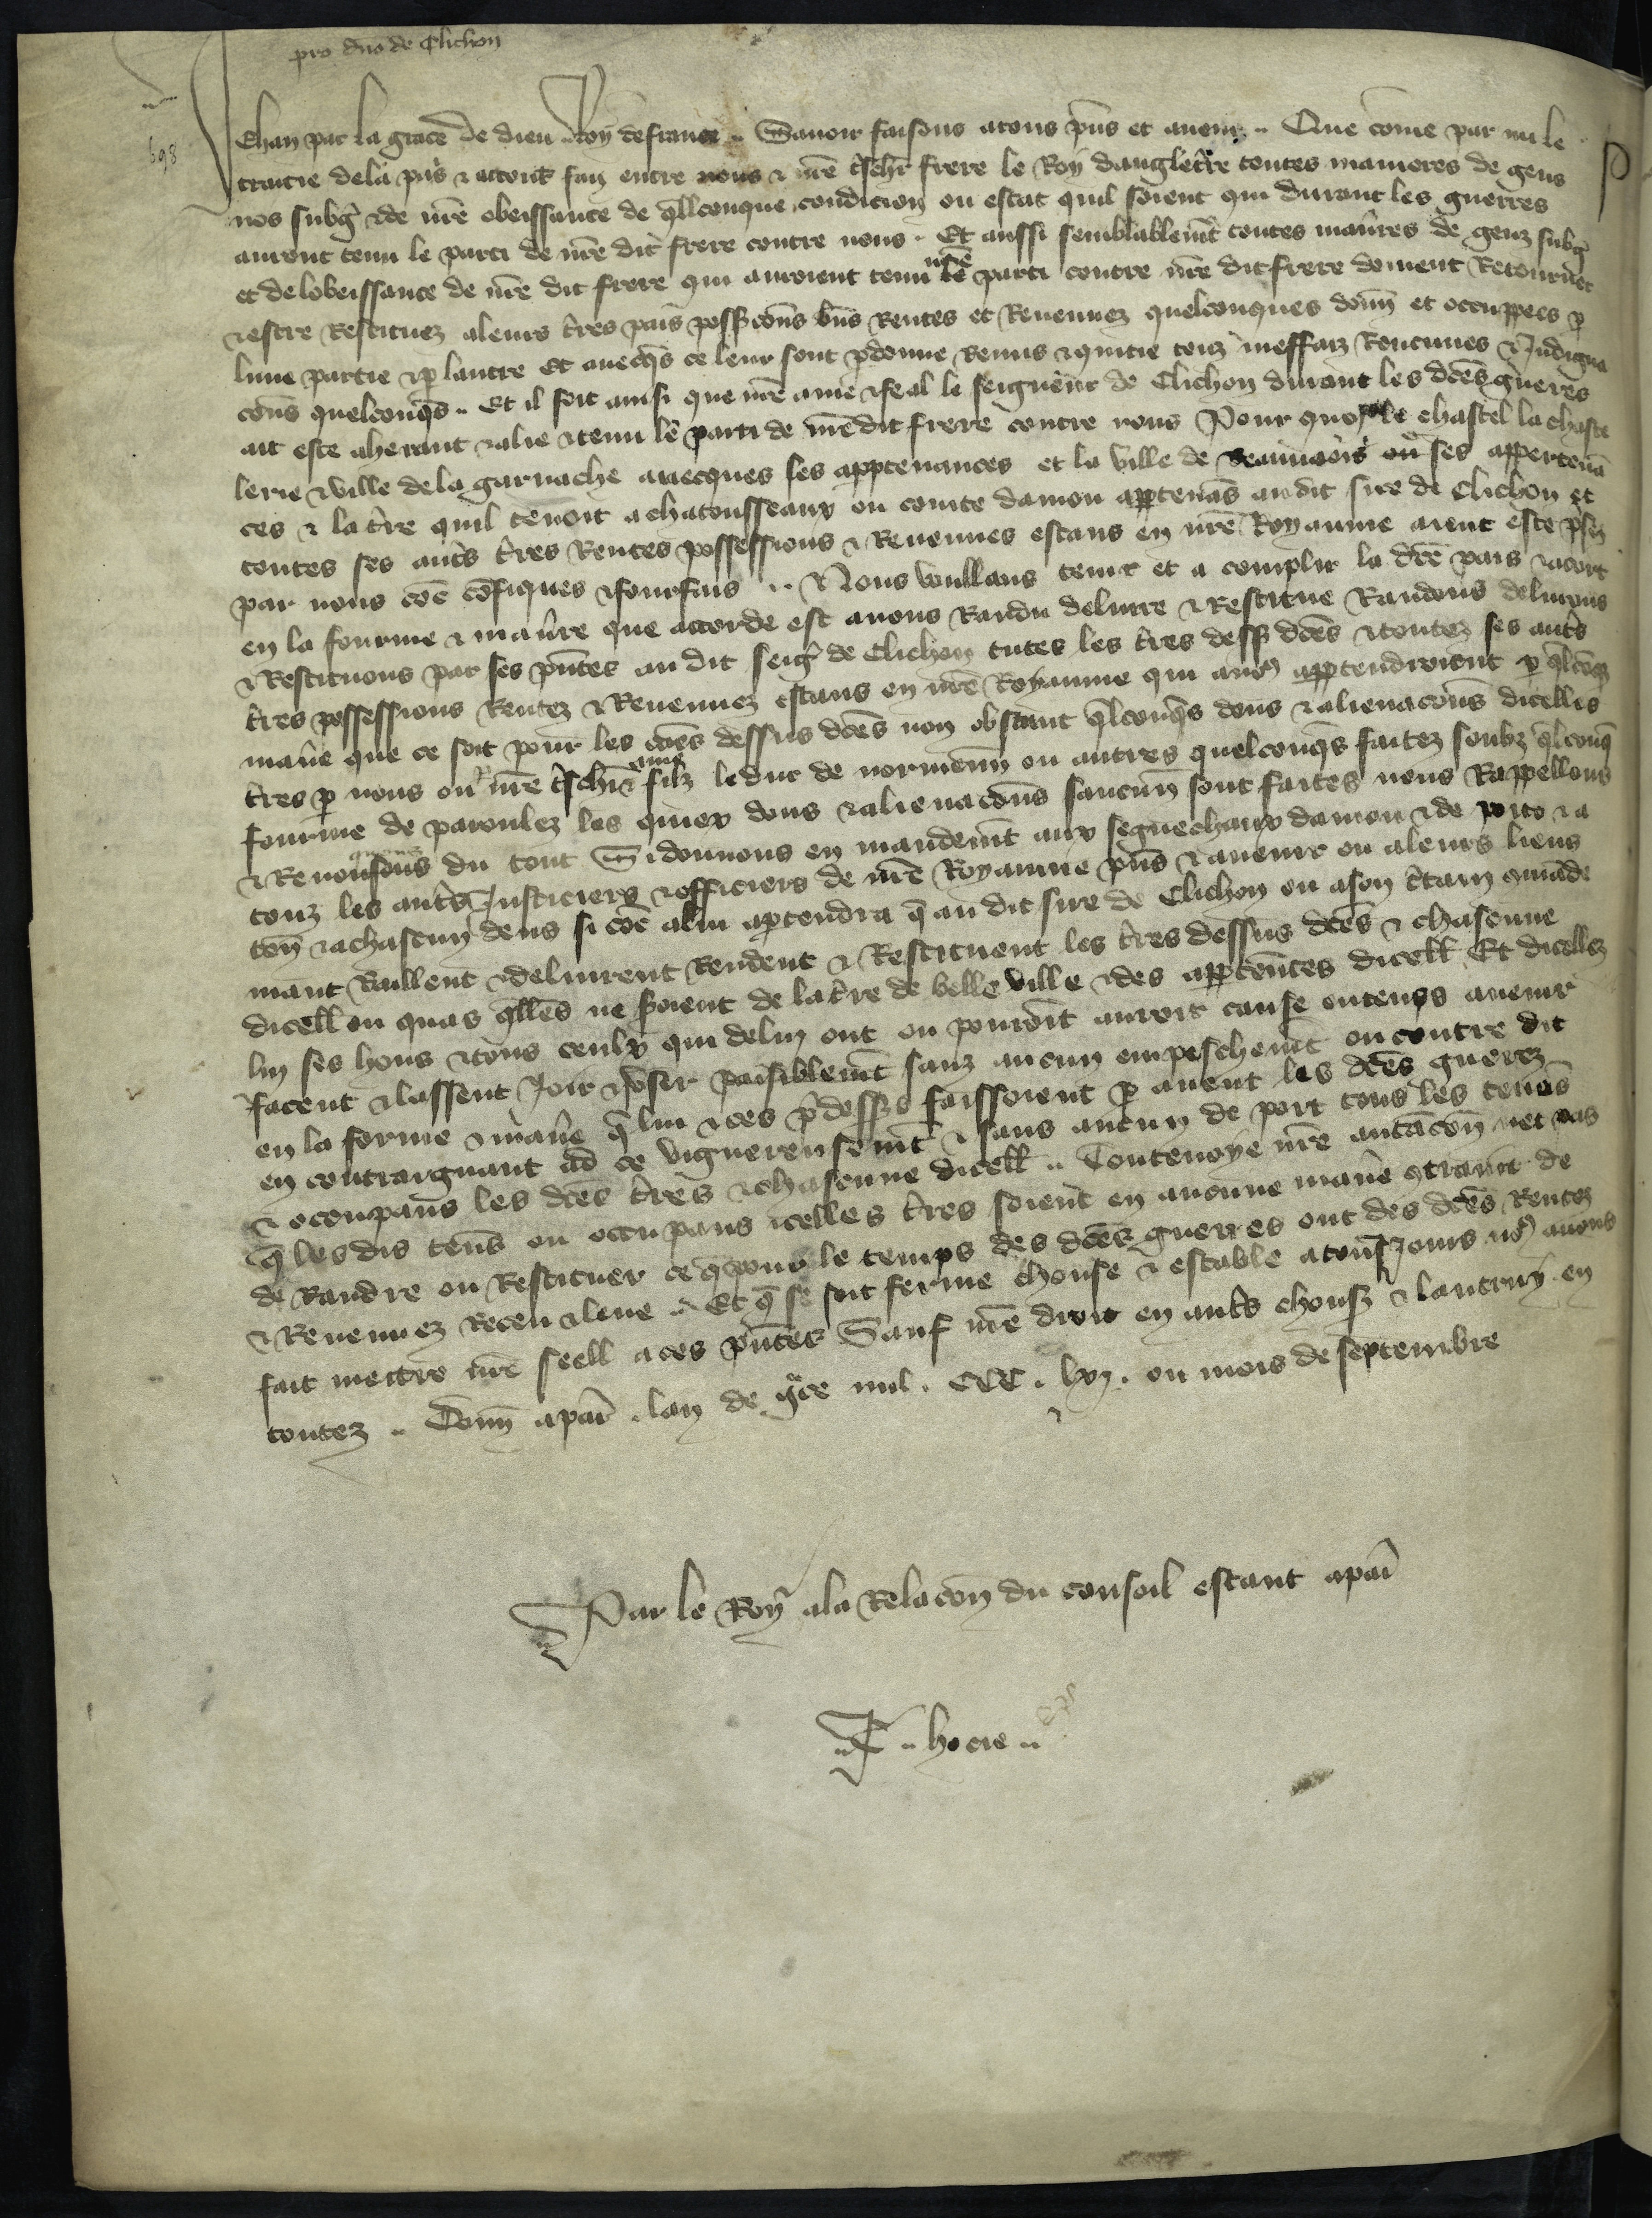 pro dno de Clichon
698
Jehan par la grace de dieu Roy de france .. Savoir faisons a tous pns et avenir .. Que come par mi le
traictie de la pais & acort fait entre nous & nre tschr frere le Roy dangletre toutes manieres de gens
nos subgˀ & de nre obeissance de qllconque condition ou estat quil soient qui durant les guerres
auront tenu le parti de nre dit frere contre nous . Et aussi semblablemt toutes manres de genz subgˀ
et de lobeissance de nre dit frere qui auroient tenu nre parti contre nre dit frere doivent Retourner
& estre Restituez a leurs tres pais possons bns Rentes et Revenuez quelconques donn et occuppees p
lune partie & p lautre Et avecqs ce leur sont pdonne Remis & quitie touz meffaiz Rencunes & Indigna
cons quelconqs .. Et il soit ainsi que nre ame & feal le seigneur de Clichon durant les dces gueres
ait este aherant & alie & tenu le parti de nre dit frere contre nous Pour quoy le chastel la chaste
lerie & ville de la garnache avecques ses apptenances et la ville de Beauvoir ou ses appertena
ces & la tre quil tenoit a chatousseaux ou conte damou apptenas au dit sire de Clichon et
toutes ses auts tres Rentes possessions & Revenues estans en nre Royaume aient este pses
par nous coe cofiques & fourfais .. Nous voullans tenir et a complir la dce pais & acort
en la fourme & manre que acorde est avons Randu delivre & Restitue Randons delivrons
& Restituons par ses pntes au dit seigr de Clichon tutes les tres dess dces & toutez ses auts
tres possessions Rentez & Revenuez estans en nre Royaume qui au apptendroient p qlcoqz
mane que ce soit pour les caes dessus dces non obstant qlconqs dons & alienacons dicelles
tres p nous ou nre tschr ame filz le duc de normenn ou autres quelconqs faitez soubz qlconq
fourme de paroulez les quiex dons & alienacons saucun sont faites nous Rappellons
& Revouquons du tout Si donnons en mandemt aux seguechaux damou & de poito & a
touz les auts Justiciers & officiers de nre Royaume pns & avenir ou a leurs lieus
ten & a chascun deus si coe a lui aptendra q au dit sire de Clichon ou a son ctain qmade
mant Baillent & delivrent Rendent & Restituent les tres dessus dces & chascune
dicell ou quas qlles ne soient de la tre de belle ville & des apptences dicell Et dicelles
lui ses hons & tous ceulx qui de lui ont ou pouroit auroit cause ou tenps avenir
facent & lassent Joir & user paisiblemt sanz aucun empeschemt ou contre dit
en la forme & mane q lui & ces pdess faissoient p avent les dces guerez
en contraignant ad ce vigueresemt & sans aucun de port tous les tenas
& ocoupans les dces tres & chascune dicell .. Toutevoye nre antacon net pas
q les dis tens ou occupans icelles tres soient en aucune mane qtraint de
de Randre ou Restituer ce q pour le temps des dces guerres ont des dces Rentez
& Revenuez Receu & leve .. Et q se soit ferme chouse & estable a tous Jours no avons
fait mectre nre seell a ces pntes Sauf nre droit en auts chous & lautruy en
toutez .. Donn a par . lan de gce mil . CCC . lxj . ou mois de septembre
Par le Roy a la Relacon du consoil estant a par